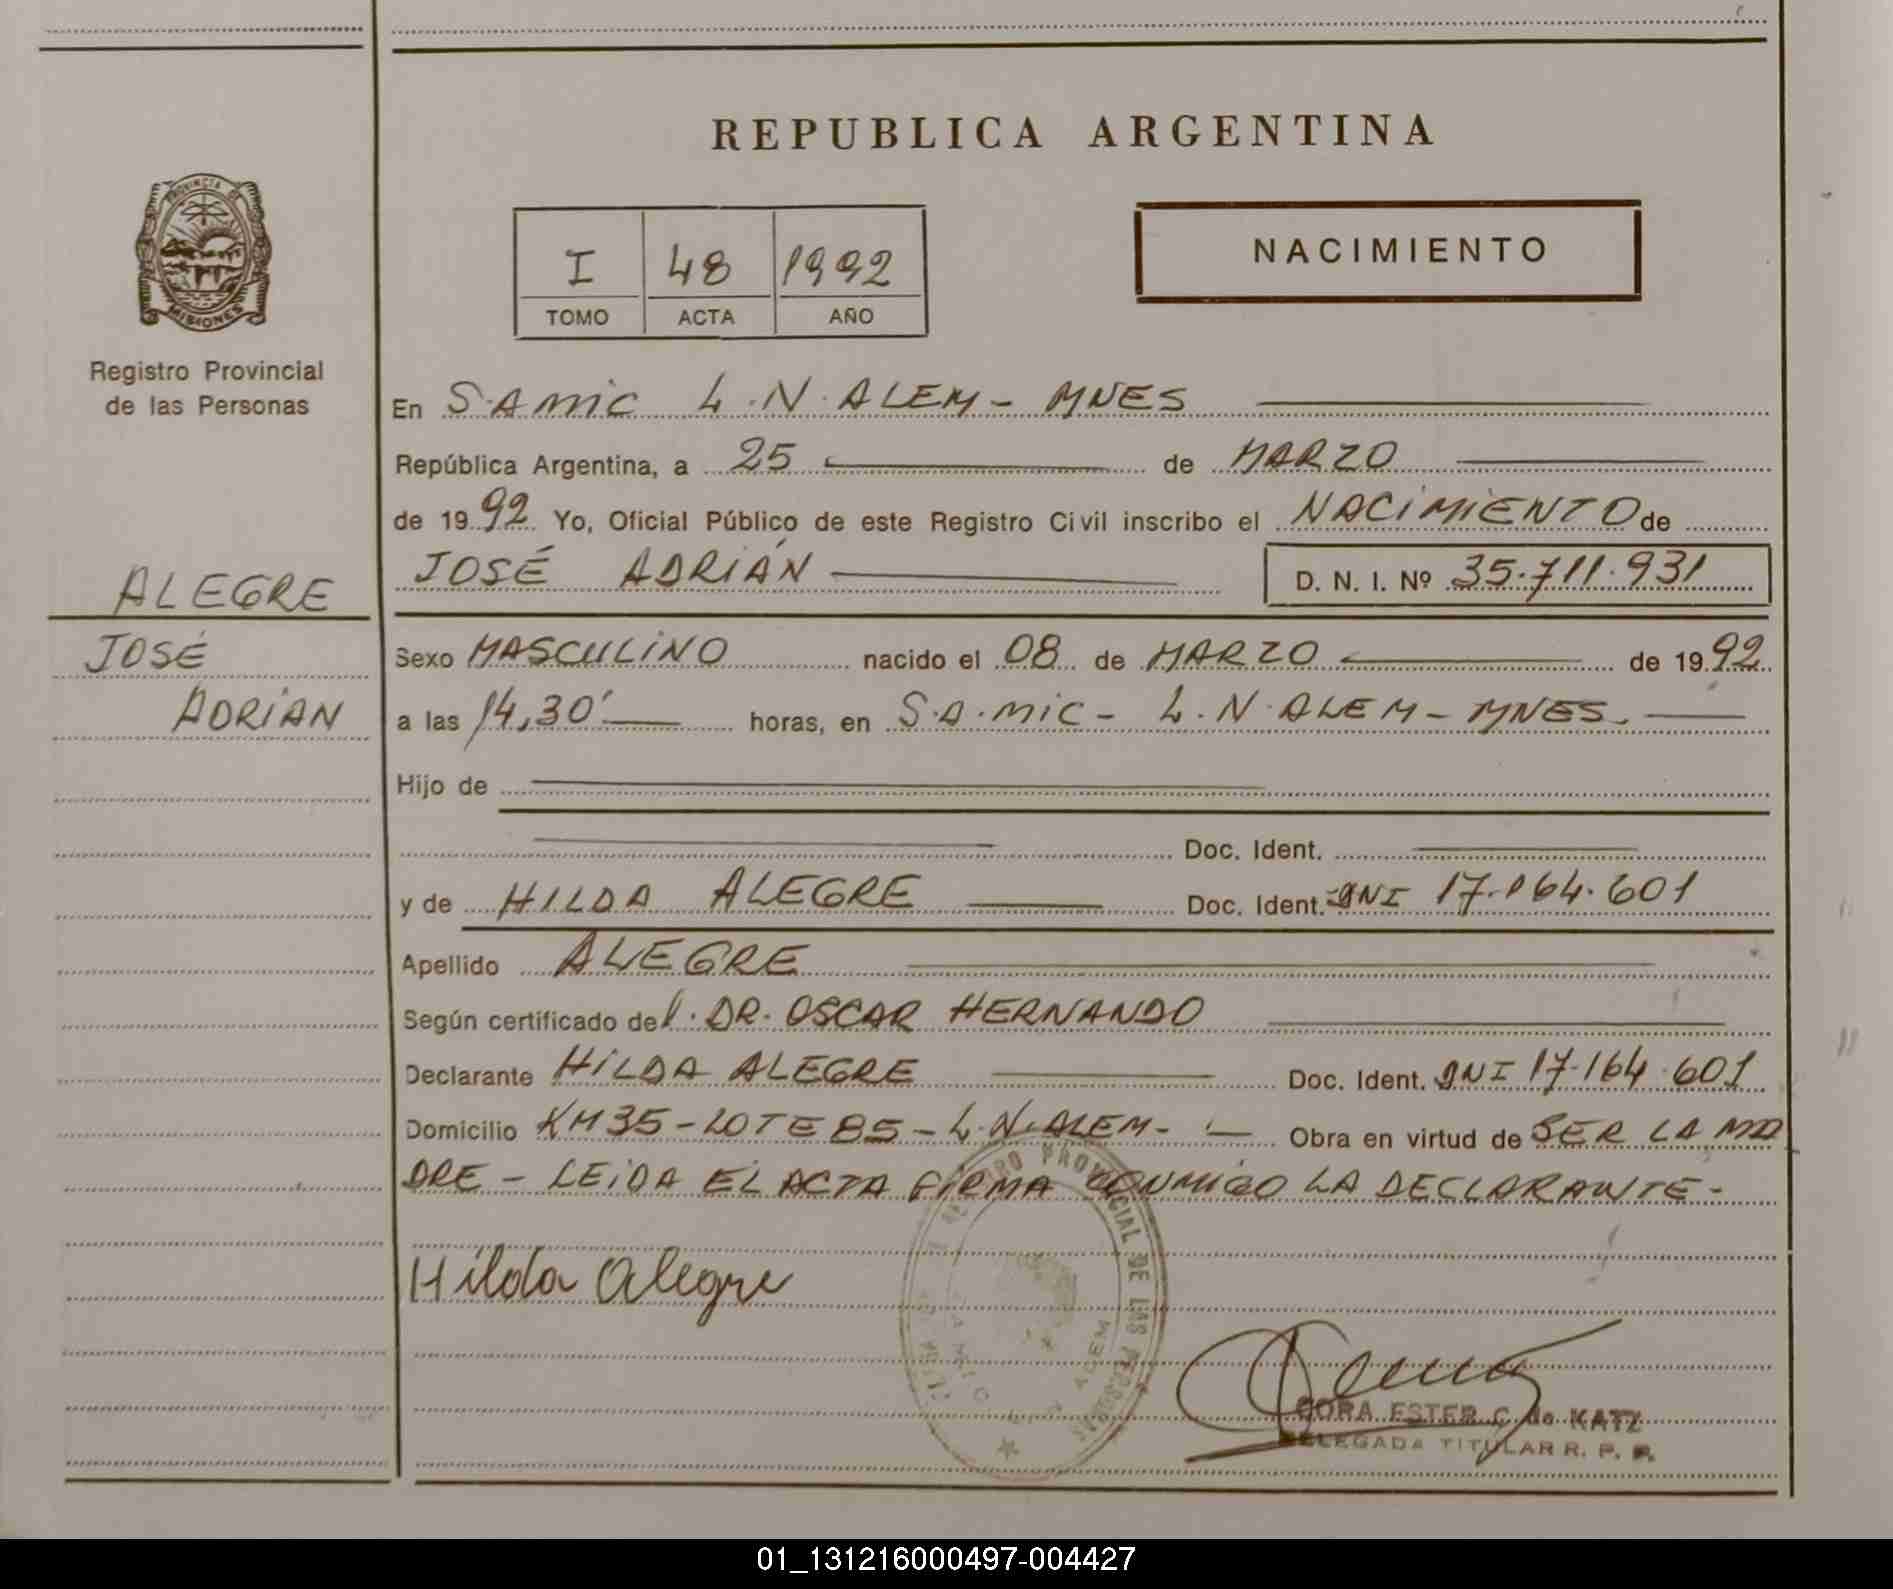 REPUBLICA ARGENTINA
PROVINCIA DE
MISIONES
Registro Provincial
de las Personas
I 48 1992
TOMO ACTA AÑO
NACIMIENTO
En S.A.MIC L.N.ALEM - MNES
República Argentina, a 25 de MARZO
de 1992 Yo, Oficial Público de este Registro Civil inscribo el NACIMIENTO de
JOSÉ ADRIÁN D. N. I. Nº 35.711.931
ALEGRE
JOSÉ
ADRIAN
Sexo MASCULINO nacido el 08 de MARZO de 1992
a las 14,30' horas, en S.A.MIC - L.N.ALEM - MNES.
Hijo de
Doc. Ident.
y de HILDA ALEGRE Doc. Ident. DNI 17.164.601
Apellido ALEGRE
Según certificado del. DR. OSCAR HERNANDO
Declarante HILDA ALEGRE Doc. Ident. DNI 17.164.601
Domicilio KM 35 - LOTE 85 - L.N.ALEM - Obra en virtud de SER LA MA
DRE - LEIDA EL ACTA FIRMA CONMIGO LA DECLARANTE -
Hilda Alegre
REGISTRO PROVINCIAL DE LAS PERSONAS
ALEM
CORA ESTER C. de KATZ
DELEGADA TITULAR R. P. P.
01_131216000497-004427